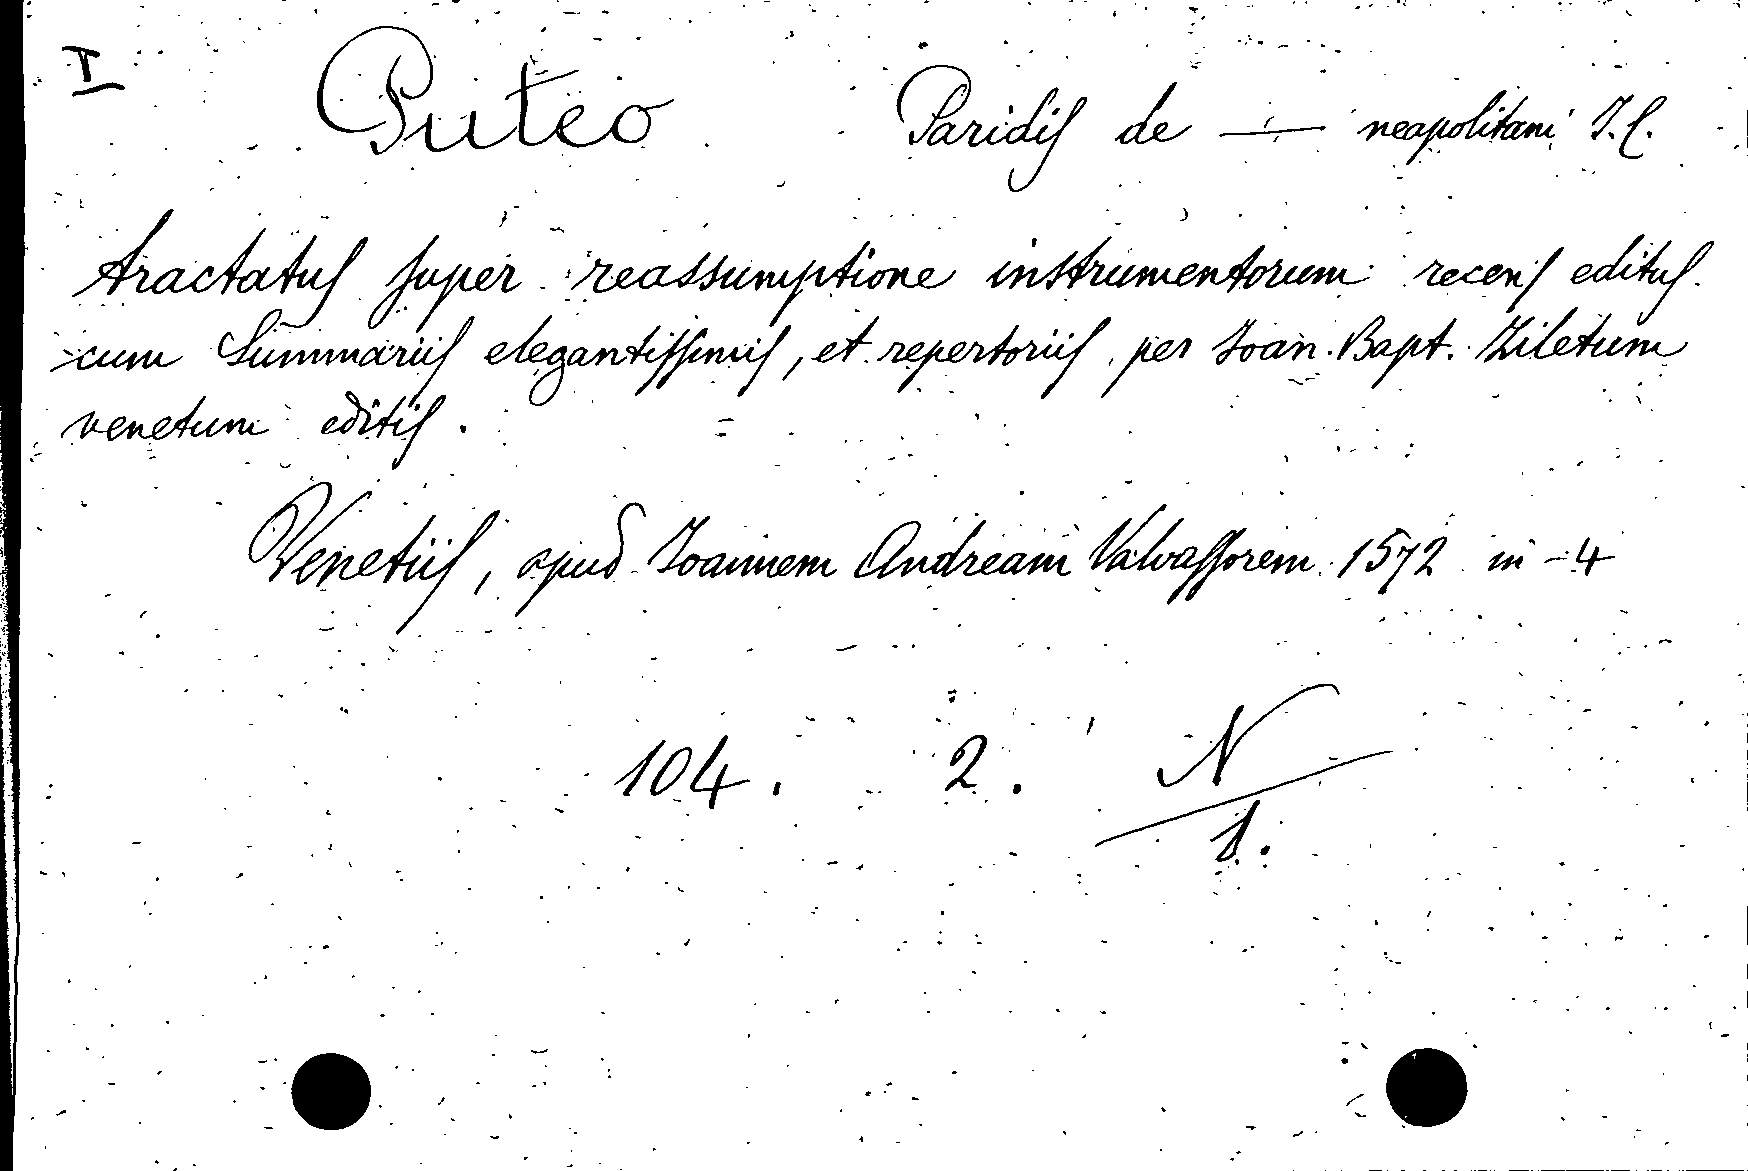 I Puteo Paridis de — neapolitani J.C.
tractatus super reassumptione instrumentorum recens editus.
cum Summariis elegantissimis, et repertoriis per Joan. Bapt. Ziletum
venetum editis.
Venetiis, apud Joannem Andream Valvassorem 1572 in-4
104. 2. N
1.